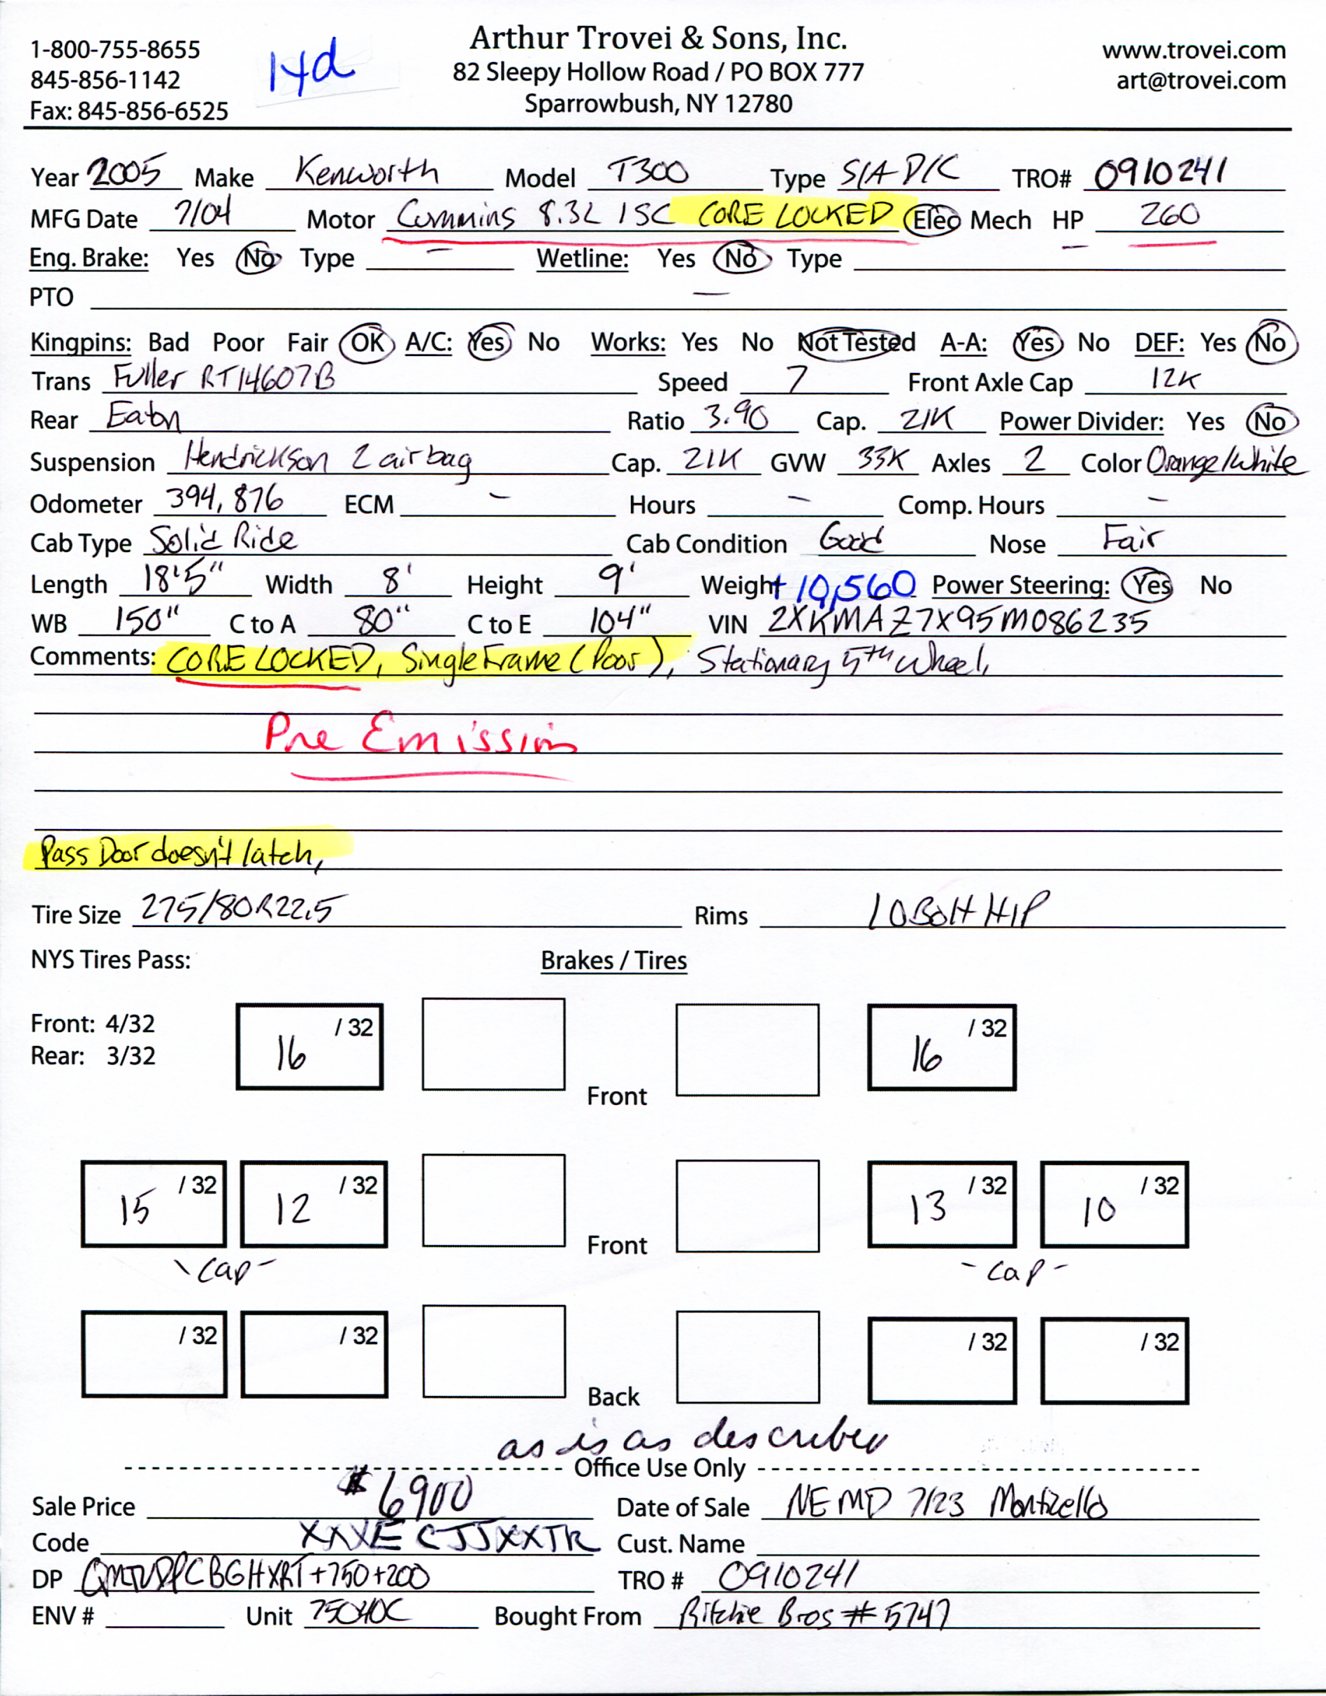 1-800-755-8655
845-856-1142
Fax: 845-856-6525
14d
Arthur Trovei & Sons, Inc.
82 Sleepy Hollow Road / PO BOX 777
Sparrowbush, NY 12780
www.trovei.com
art@trovei.com
Year 2005 Make Kenworth Model T300 Type S/A D/C TRO# 0910241
MFG Date 7/04 Motor Cummins 8.3L ISC CORE LOCKED Elec Mech HP 260
Eng. Brake: Yes No Type – Wetline: Yes No Type
PTO –
Kingpins: Bad Poor Fair OK A/C: Yes No Works: Yes No Not Tested A-A: Yes No DEF: Yes No
Trans Fuller RT14607B Speed 7 Front Axle Cap 12K
Rear Eaton Ratio 3.90 Cap. 21K Power Divider: Yes No
Suspension Hendrickson 2 airbag Cap. 21K GVW 33K Axles 2 Color Orange/White
Odometer 394,876 ECM – Hours – Comp. Hours –
Cab Type Solid Ride Cab Condition Good Nose Fair
Length 18'5" Width 8' Height 9' Weight + 10,560 Power Steering: Yes No
WB 150" C to A 80" C to E 104" VIN 2XKMAZ7X95M086235
Comments: CORE LOCKED, Single Frame (Poor), Stationary 5th Wheel,
Pre Emission
Pass Door doesn't latch,
Tire Size 275/80R22.5 Rims 10 Bolt HP
NYS Tires Pass: Brakes / Tires
Front: 4/32
Rear: 3/32
16 / 32 Front 16 / 32
15 / 32 12 / 32 Front 13 / 32 10 / 32
- Cap - - Cap -
/ 32 / 32 Back / 32 / 32
as is as described
Office Use Only
Sale Price $6900 Date of Sale NEMD 7/23 Monticello
Code XXXECJJXXTR Cust. Name
DP +750+200 TRO # 0910241
ENV # Unit 75040C Bought From Ritchie Bros #5747